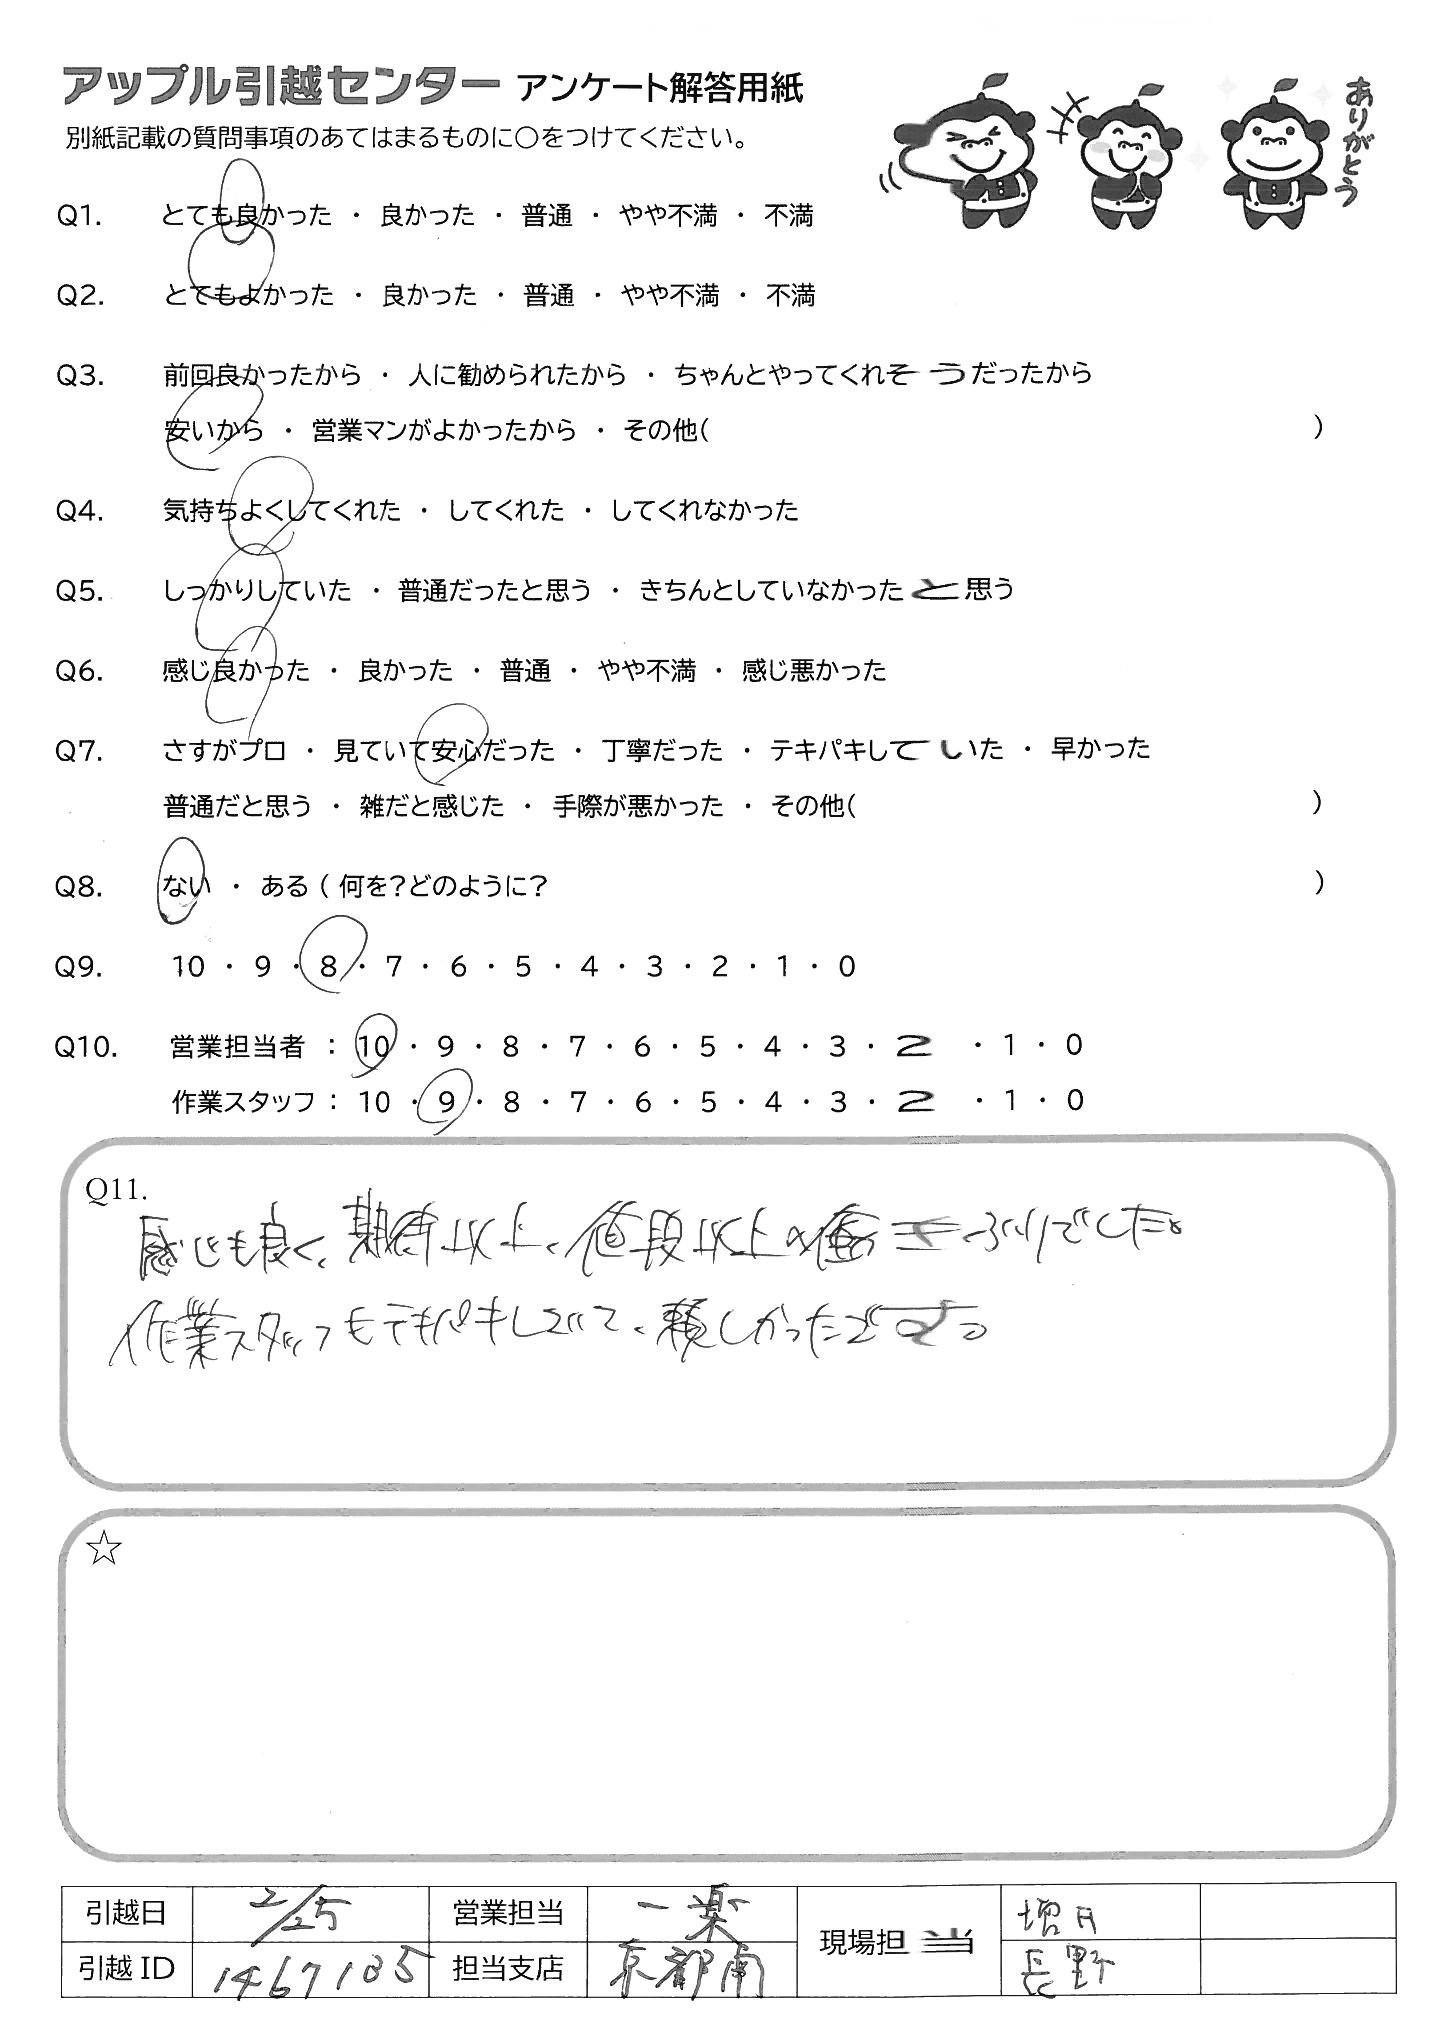 アップル引越センター アンケート解答用紙
ありがとう
別紙記載の質問事項のあてはまるものに○をつけてください。
Q1. とても良かった ・ 良かった ・ 普通 ・ やや不満 ・ 不満
Q2. とてもよかった ・ 良かった ・ 普通 ・ やや不満 ・ 不満
Q3. 前回良かったから ・ 人に勧められたから ・ ちゃんとやってくれそうだったから
安いから ・ 営業マンがよかったから ・ その他( )
Q4. 気持ちよくしてくれた ・ してくれた ・ してくれなかった
Q5. しっかりしていた ・ 普通だったと思う ・ きちんとしていなかったと思う
Q6. 感じ良かった ・ 良かった ・ 普通 ・ やや不満 ・ 感じ悪かった
Q7. さすがプロ ・ 見ていて安心だった ・ 丁寧だった ・ テキパキしていた ・ 早かった
普通だと思う ・ 雑だと感じた ・ 手際が悪かった ・ その他( )
Q8. ない ・ ある ( 何を?どのように? )
Q9. 10 ・ 9 ・ 8 ・ 7 ・ 6 ・ 5 ・ 4 ・ 3 ・ 2 ・ 1 ・ 0
Q10. 営業担当者 : 10 ・ 9 ・ 8 ・ 7 ・ 6 ・ 5 ・ 4 ・ 3 ・ 2 ・ 1 ・ 0
作業スタッフ : 10 ・ 9 ・ 8 ・ 7 ・ 6 ・ 5 ・ 4 ・ 3 ・ 2 ・ 1 ・ 0
Q11.
感じも良く、期待以上、値段以上の働きぶりでした。
作業スタッフもテキパキしてて、頼しかったです。
☆
引越日 2/25 営業担当 一楽 現場担当 増月
引越ID 1467185 担当支店 京都南 長野